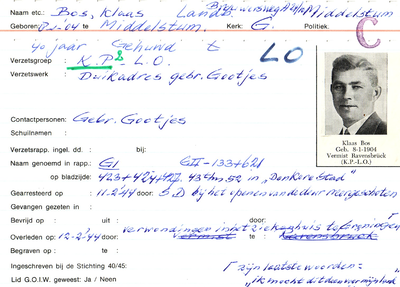 Naam etc.: Bos, Klaas Landb. Middelstum
Geboren: 8-1-'04 te Middelstum. Kerk: G. Politiek.
40 jaar Gehuwd
C
Verzetsgroep : K.P. L.O. LO
Verzetswerk : Duikadres gebr. Gootjes
Contactpersonen: Gebr. Gootjes
Schuilnamen :
Klaas Bos
Geb. 8-1-1904
Vermist Ravensbrück
(K.P.-L.O.)
Verzetsrapp. ingel. dd. : bij:
Naam genoemd in rapp.: GI GII-133+621
op bladzijde: 423+424+ 43 in "Donkere Stad"
Gearresteerd op : 11-2-'44 door: S.D bij het openen van de deur neergeschoten
Gevangen gezeten in :
Bevrijd op : uit : door: door:
verwondingen in het ziekenhuis te Groningen
Overleden op: 12-2-'44 te: Vermist te: Ravensbrück
Begraven op : te :
Ingeschreven bij de Stichting 40/45: zijn laatste woorden:
Lid G.O.I.W. geweest: Ja / Neen "ik mocht dit doen voor mijn land